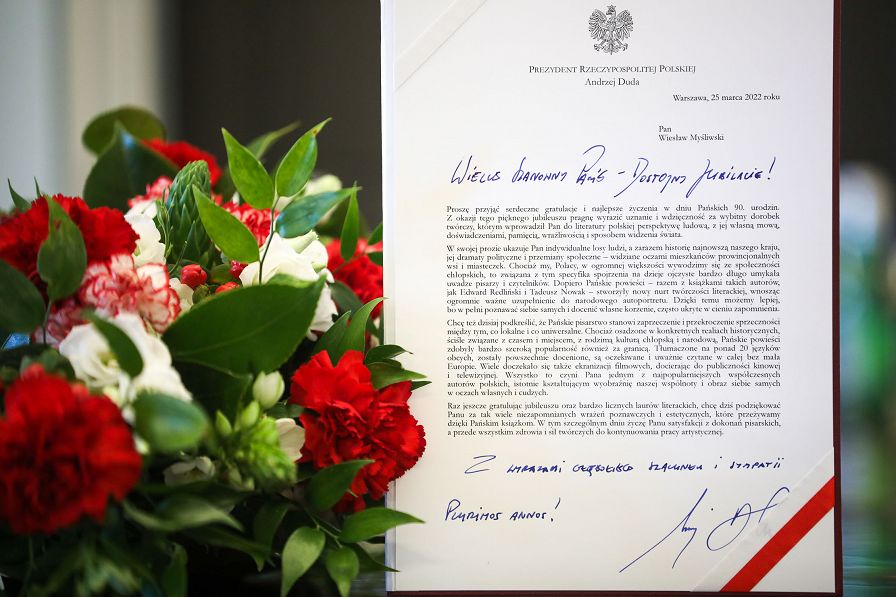 PREZYDENT RZECZYPOSPOLITEJ POLSKIEJ
Andrzej Duda
Warszawa, 25 marca 2022 roku
Pan
Wiesław Myśliwski
Wielce Szanowny Panie – Dostojny Jubilacie!
Proszę przyjąć serdeczne gratulacje i najlepsze życzenia w dniu Pańskich 90. urodzin.
Z okazji tego pięknego jubileuszu pragnę wyrazić uznanie i wdzięczność za wybitny dorobek
twórczy, którym wprowadził Pan do literatury polskiej perspektywę ludową, z jej własną mową,
doświadczeniami, pamięcią, wrażliwością i sposobem widzenia świata.
W swojej prozie ukazuje Pan indywidualne losy ludzi, a zarazem historię najnowszą naszego kraju,
jej dramaty polityczne i przemiany społeczne – widziane oczami mieszkańców prowincjonalnych
wsi i miasteczek. Chociaż my, Polacy, w ogromnej większości wywodzimy się ze społeczności
chłopskich, to związana z tym specyfika spojrzenia na dzieje ojczyste bardzo długo umykała
uwadze pisarzy i czytelników. Dopiero Pańskie powieści – razem z książkami takich autorów,
jak Edward Redliński i Tadeusz Nowak – stworzyły nowy nurt twórczości literackiej, wnosząc
ogromnie ważne uzupełnienie do narodowego autoportretu. Dzięki temu możemy lepiej,
bo w pełni poznawać siebie samych i docenić własne korzenie, często ukryte w cieniu zapomnienia.
Chcę też dzisiaj podkreślić, że Pańskie pisarstwo stanowi zaprzeczenie i przekroczenie sprzeczności
między tym, co lokalne i co uniwersalne. Chociaż osadzone w konkretnych realiach historycznych,
ściśle związane z czasem i miejscem, z rodzimą kulturą chłopską i narodową, Pańskie powieści
zdobyły bardzo szeroką popularność również za granicą. Tłumaczone na ponad 20 języków
obcych, zostały powszechnie docenione, są oczekiwane i uważnie czytane w całej bez mała
Europie. Wiele doczekało się także ekranizacji filmowych, docierając do publiczności kinowej
i telewizyjnej. Wszystko to czyni Pana jednym z najpopularniejszych współczesnych
autorów polskich, istotnie kształtującym wyobraźnię naszej wspólnoty i obraz siebie samych
w oczach własnych i cudzych.
Raz jeszcze gratulując jubileuszu oraz bardzo licznych laurów literackich, chcę dziś podziękować
Panu za tak wiele niezapomnianych wrażeń poznawczych i estetycznych, które przeżywamy
dzięki Pańskim książkom. W tym szczególnym dniu życzę Panu satysfakcji z dokonań pisarskich,
a przede wszystkim zdrowia i sił twórczych do kontynuowania pracy artystycznej.
Z wyrazami głębokiego szacunku i sympatii
Plurimos annos!